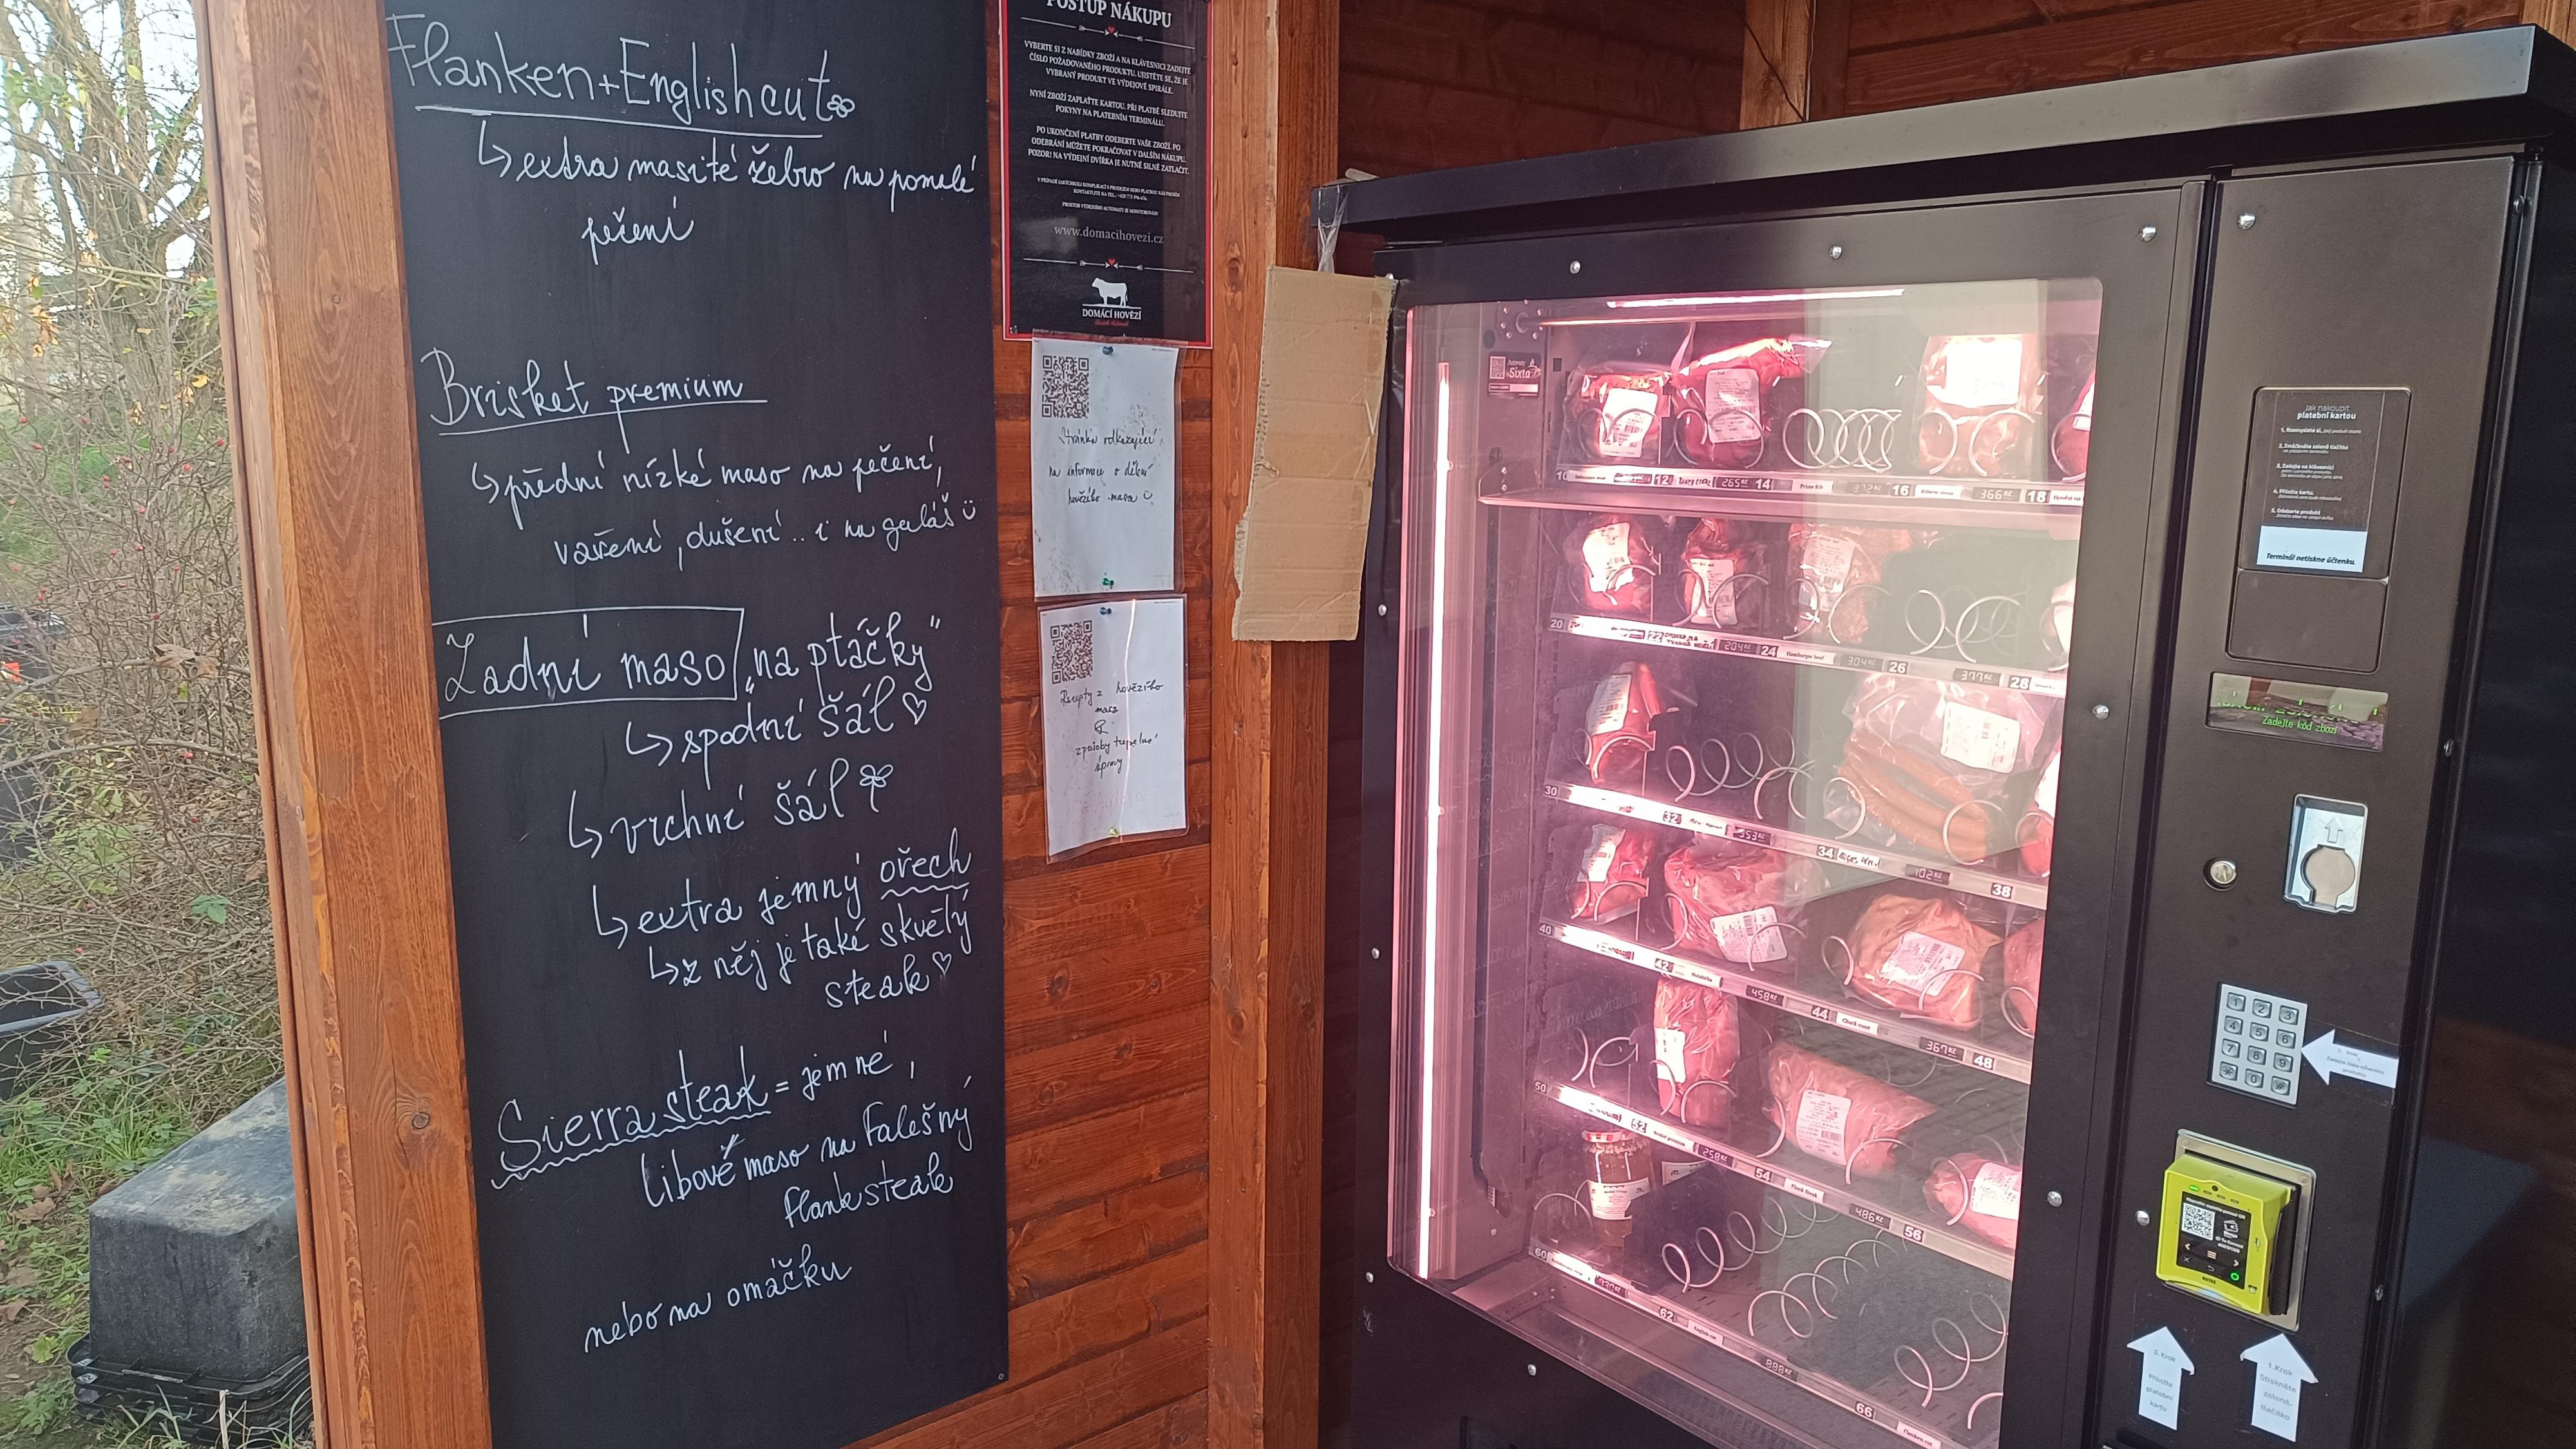 Flanken+Englishcut
↳extra masité žebro na pomalé
pečení
Brisket premium
↳přední nízké maso na pečení,
vaření, dušení .. i na guláš
Zadní maso „na ptáčky"
↳spodní šál
↳vrchní šál
↳extra jemný ořech
↳z něj je také skvělý
steak
Sierra steak = jemné,
libové maso na Falešný
flanksteak
nebo na omáčku
POSTUP NÁKUPU
VYBERTE SI Z NABÍDKY ZBOŽÍ A NA KLÁVESNICI ZADEJTE
ČÍSLO POŽADOVANÉHO PRODUKTU. UJISTĚTE SE, ŽE JE
VYBRANÝ PRODUKT VE VÝDEJOVÉ SPIRÁLE.
NYNÍ ZBOŽÍ ZAPLAŤTE KARTOU. PŘI PLATBĚ SLEDUJTE
POKYNY NA PLATEBNÍM TERMINÁLU.
PO UKONČENÍ PLATBY ODEBERTE VAŠE ZBOŽÍ. PO
ODEBRÁNÍ MŮŽETE POKRAČOVAT V DALŠÍM NÁKUPU.
POZOR! NA VÝDEJNÍ DVÍŘKA JE NUTNÉ SILNĚ ZATLAČIT.
PROSTOR VÝDEJNÍHO AUTOMATU JE MONITOROVÁN
www.domacihovezi.cz
DOMÁCÍ HOVĚZÍ
Stránka odkazující
na informace o dělení
hovězího masa
Recepty z hovězího
masa
&
způsoby tepelné
úpravy
Sixta
10 12 265 Kč 14 Prime Rib 372 Kč 16 366 Kč 18
20 22 204 Kč 24 Hamburger beef 304 Kč 26 377 Kč 28
30 32 353 Kč 34 102 Kč 38
40 42 458 Kč 44 Chuck roast 367 Kč 48
50 52 Brisket premium 258 Kč 54 Flank Steak 486 Kč 56
60 62 English cut 888 Kč 66 Flanken cut
Jak nakoupit
platební kartou
2. Zmáčkněte zelené tlačítko
3. Zadejte na klávesnici
4. Přiložte kartu.
5. Odeberte produkt
Terminál netiskne účtenku.
Zadejte kod zbozi
1 2 3
4 5 6
7 8 9
* 0 #
3. Krok
Přiložte
platební
kartu
1. Krok
Stiskněte
zelené
tlačítko